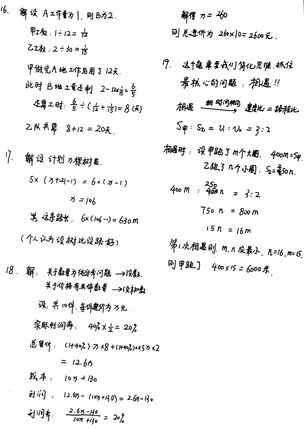 16. 解 设 A工作量为1, 则B为2.
甲工效: 1÷12 = 1/12
乙工效: 2÷30 = 1/15
甲做完A地工作后用了12天.
此时B地工量还剩 2-12×1/15 = 6/5
还需工时: 6/5÷(1/15+1/12) = 8(天)
乙队共算 8+12=20天.
17. 解 设 计划 x棵树苗.
5×(x+21-1) = 6×(x-1)
x = 106
第 这条路长: 6×(106-1)=630m
(个人认为设树比设路好)
18. 解: 关于数量为纯分布问题 →设数.
设: 共10件, 每件进价为x元.
实际利润率: 40%×1/2=20%
总售价: (1+40%)·x×8+(1+40%)×0.5x×2
= 12.6x
成本: 10x+130
利润: 12.6x-(10x+130)=2.6x-130
利润率: 2.6x-130/10x+130 = 20%
解得 x=260
则总进价为 260×10=2600元.
19. 这个题要我们简化思维, 抓住
最核心的问题: 相遇!!
相遇 相同时间内→ 速度比=路程比
S甲:S乙 = u:u = 3:2
相遇时: 设甲跑了m个大圈, 400m=S甲
乙跑了n个小圈, S乙=250n.
400m : 250n = 3:2
750n = 800m
15n = 16m
第1次相遇则 m,n应最小. n=16, m=15.
则甲跑了 400×15=6000米.